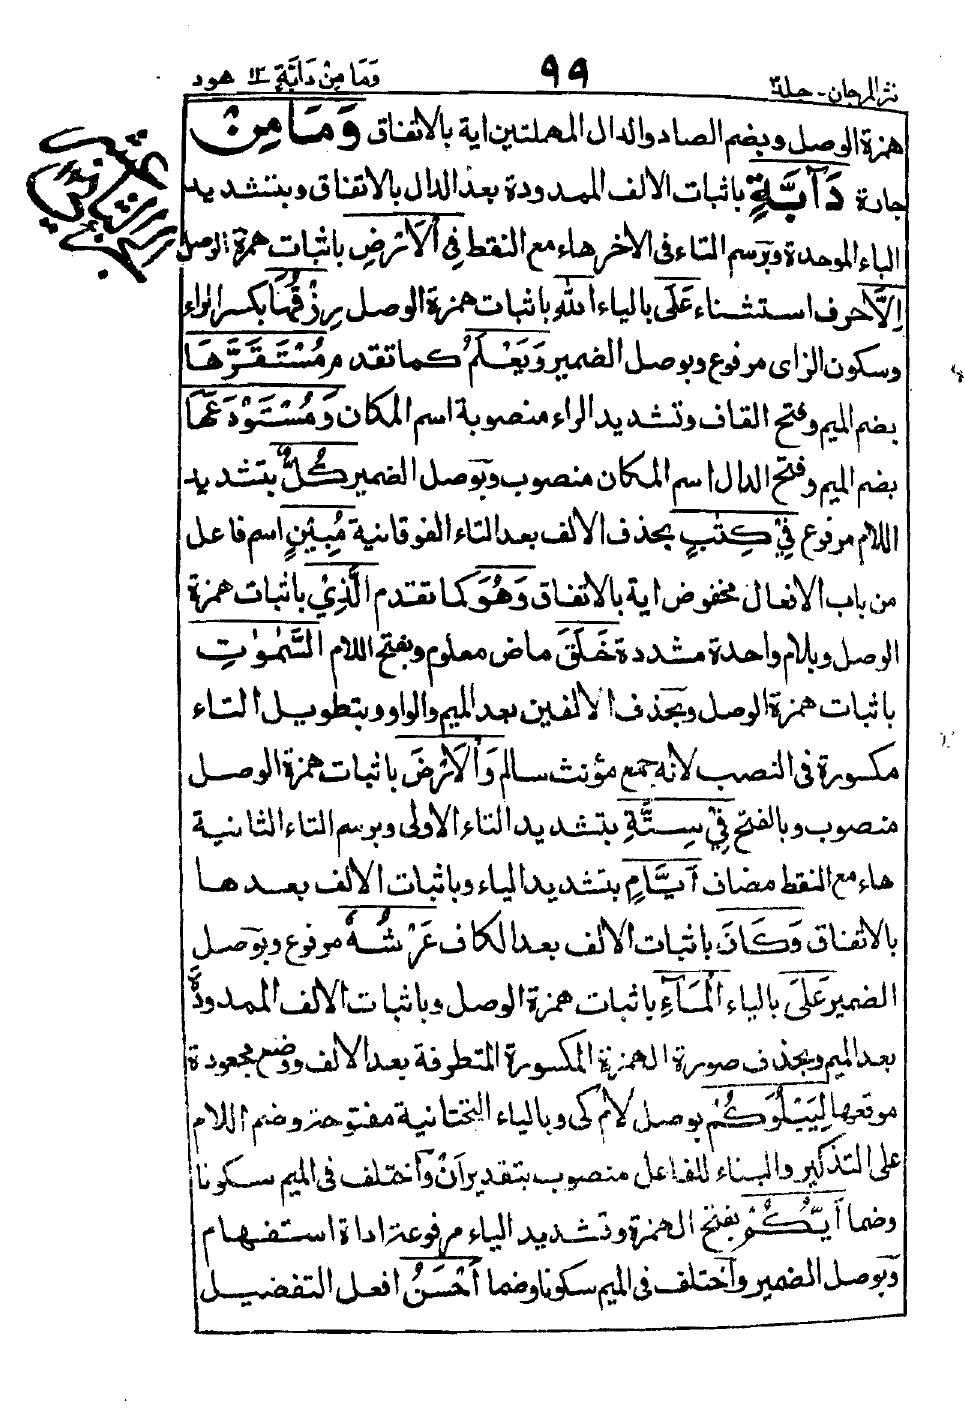 نثر المرجان - جلد٣
٩٩
وَمَا مِنْ دَابَّةٍ ١٢ هود
همزة الوصل وبضم الصاد والدال المهملتين اية بالاتفاق وَمَا مِنْ
جارة دَآبَّةٍ باثبات الالف الممدودة بعد الدال بالاتفاق وبتشديد
الباء الموحدة وبرسم التاء فى الاخر هاء مع النقط فِي الْاَرْضِ باثبات همزة الوصل
اِلَّا حرف استثناء عَلَى بالياء اللهِ باثبات همزة الوصل رِزْقُهَا بكسر الراء
وسكون الزاى مرفوع وبوصل الضمير وَيَعْلَمُ كما تقدم مُسْتَقَرَّهَا
بضم الميم وفتح القاف وتشديد الراء منصوبة اسم المكان وَمُسْتَوْدَعَهَا
بضم الميم وفتح الدال اسم المكان منصوب وبوصل الضمير كُلٌّ بتشديد
اللام مرفوع فِيْ كِتٰبٍ بحذف الالف بعد التاء الفوقانية مُّبِيْنٍ اسم فاعل
من باب الافعال مخفوض اية بالاتفاق وَهُوَ كما تقدم الَّذِيْ باثبات همزة
الوصل وبلام واحدة مشددة خَلَقَ ماض معلوم وبفتح اللام السَّمٰوٰتِ
باثبات همزة الوصل وبحذف الالفين بعد الميم والواو وبتطويل التاء
مكسورة فى النصب لانه جمع مؤنث سالم وَالْاَرْضَ باثبات همزة الوصل
منصوب وبالفتح فِيْ سِتَّةِ بتشديد التاء الاولى وبرسم التاء الثانية
هاء مع النقط مضاف اَيَّامٍ بتشديد الياء وباثبات الالف بعدها
بالاتفاق وَكَانَ باثبات الالف بعد الكاف عَرْشُهٗ مرفوع وبوصل
الضمير عَلَى بالياء الْمَآءِ باثبات همزة الوصل وباثبات الالف الممدودة
بعد الميم وبحذف صورة الهمزة المكسورة المتطرفة بعد الالف ووضع مجعودة
موقعها لِيَبْلُوَكُمْ بوصل لام كى وبالياء التحتانية مفتوحة وضم اللام
على التذكير والبناء للفاعل منصوب بتقدير اَنْ واختلف فى الميم سكونا
وضما اَيُّكُمْ بفتح الهمزة وتشديد الياء مرفوعة اداة استفهام
وبوصل الضمير واختلف فى الميم سكونا وضما اَحْسَنُ افعل التفضيل